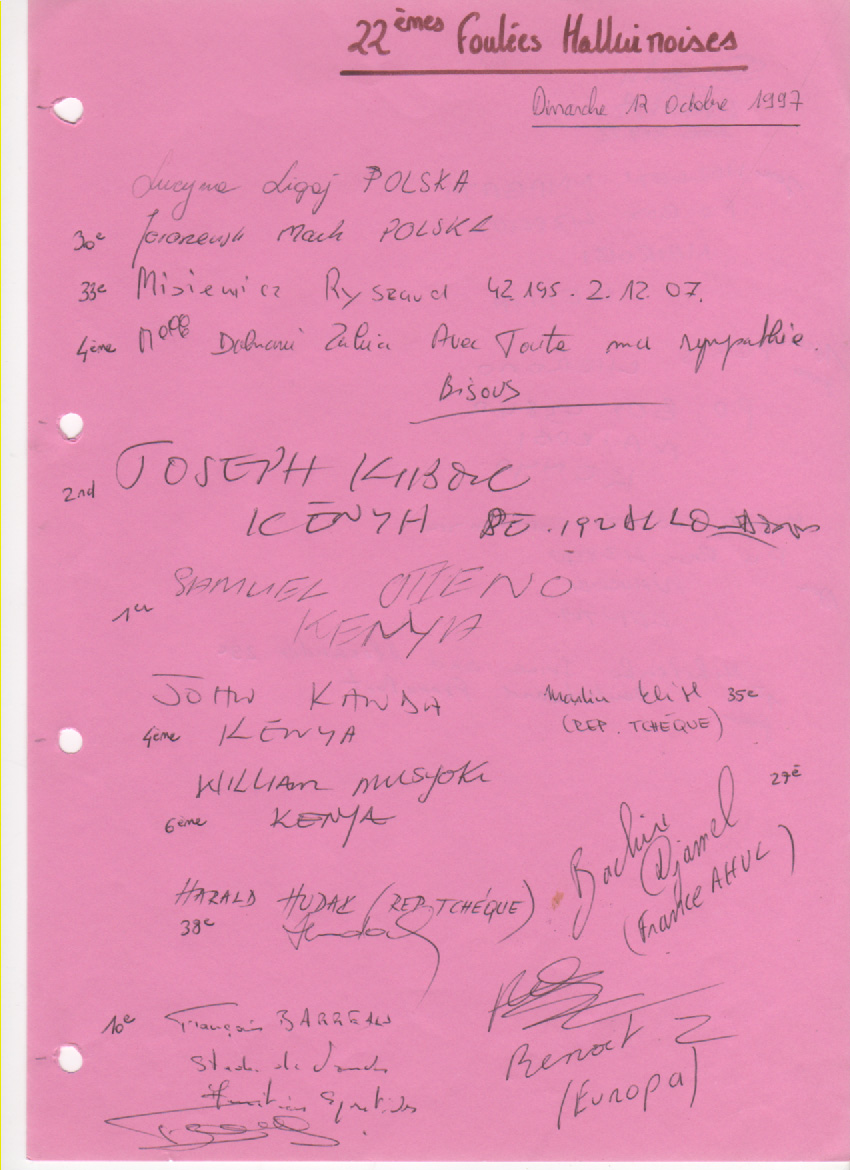 22èmes Foulées Halluinoises
Dimanche 12 Octobre 1997
Lucyna Ligaj POLSKA
30e Mach POLSKA
33e Misiewicz Ryszard 42.195. 2.12.07.
4ème Melle Dahmani Avec Toute ma sympathie.
Bisous
2nd JOSEPH KIBOR
KENYA
SAMUEL OTIENO
1er
KENYA
JOHN KANDA
4ème KENYA
Martin 35e
(REP. TCHEQUE)
WILLIAM MUSYOKI
6ème KENYA
27è
Bachir
Djamel
(France AHVL)
HARALD HUDAK (REP. TCHÉQUE)
38e
10e François BARREAU
Stade de
Benoit Z
(Europa)